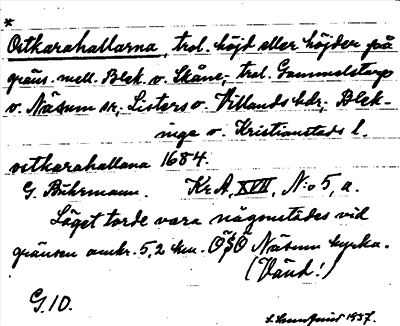 *
Oitkarahallarna, trol. höjd eller höjder på
gräns. mell. Blek. o. Skåne, trol. Gammelstorp
o. Näsum sn, Listers o. Villands hdr, Blek-
inge o. Kristianstads l.
oitkarahallana 1684.
G. Buhrmann. Kr A, XVII, N:o 5, a.
Läget torde vara någonstädes vid
gränsen omkr. 5,2 km. ÖSÖ Näsum kyrka.
(Vänd!)
G.10.
1937.